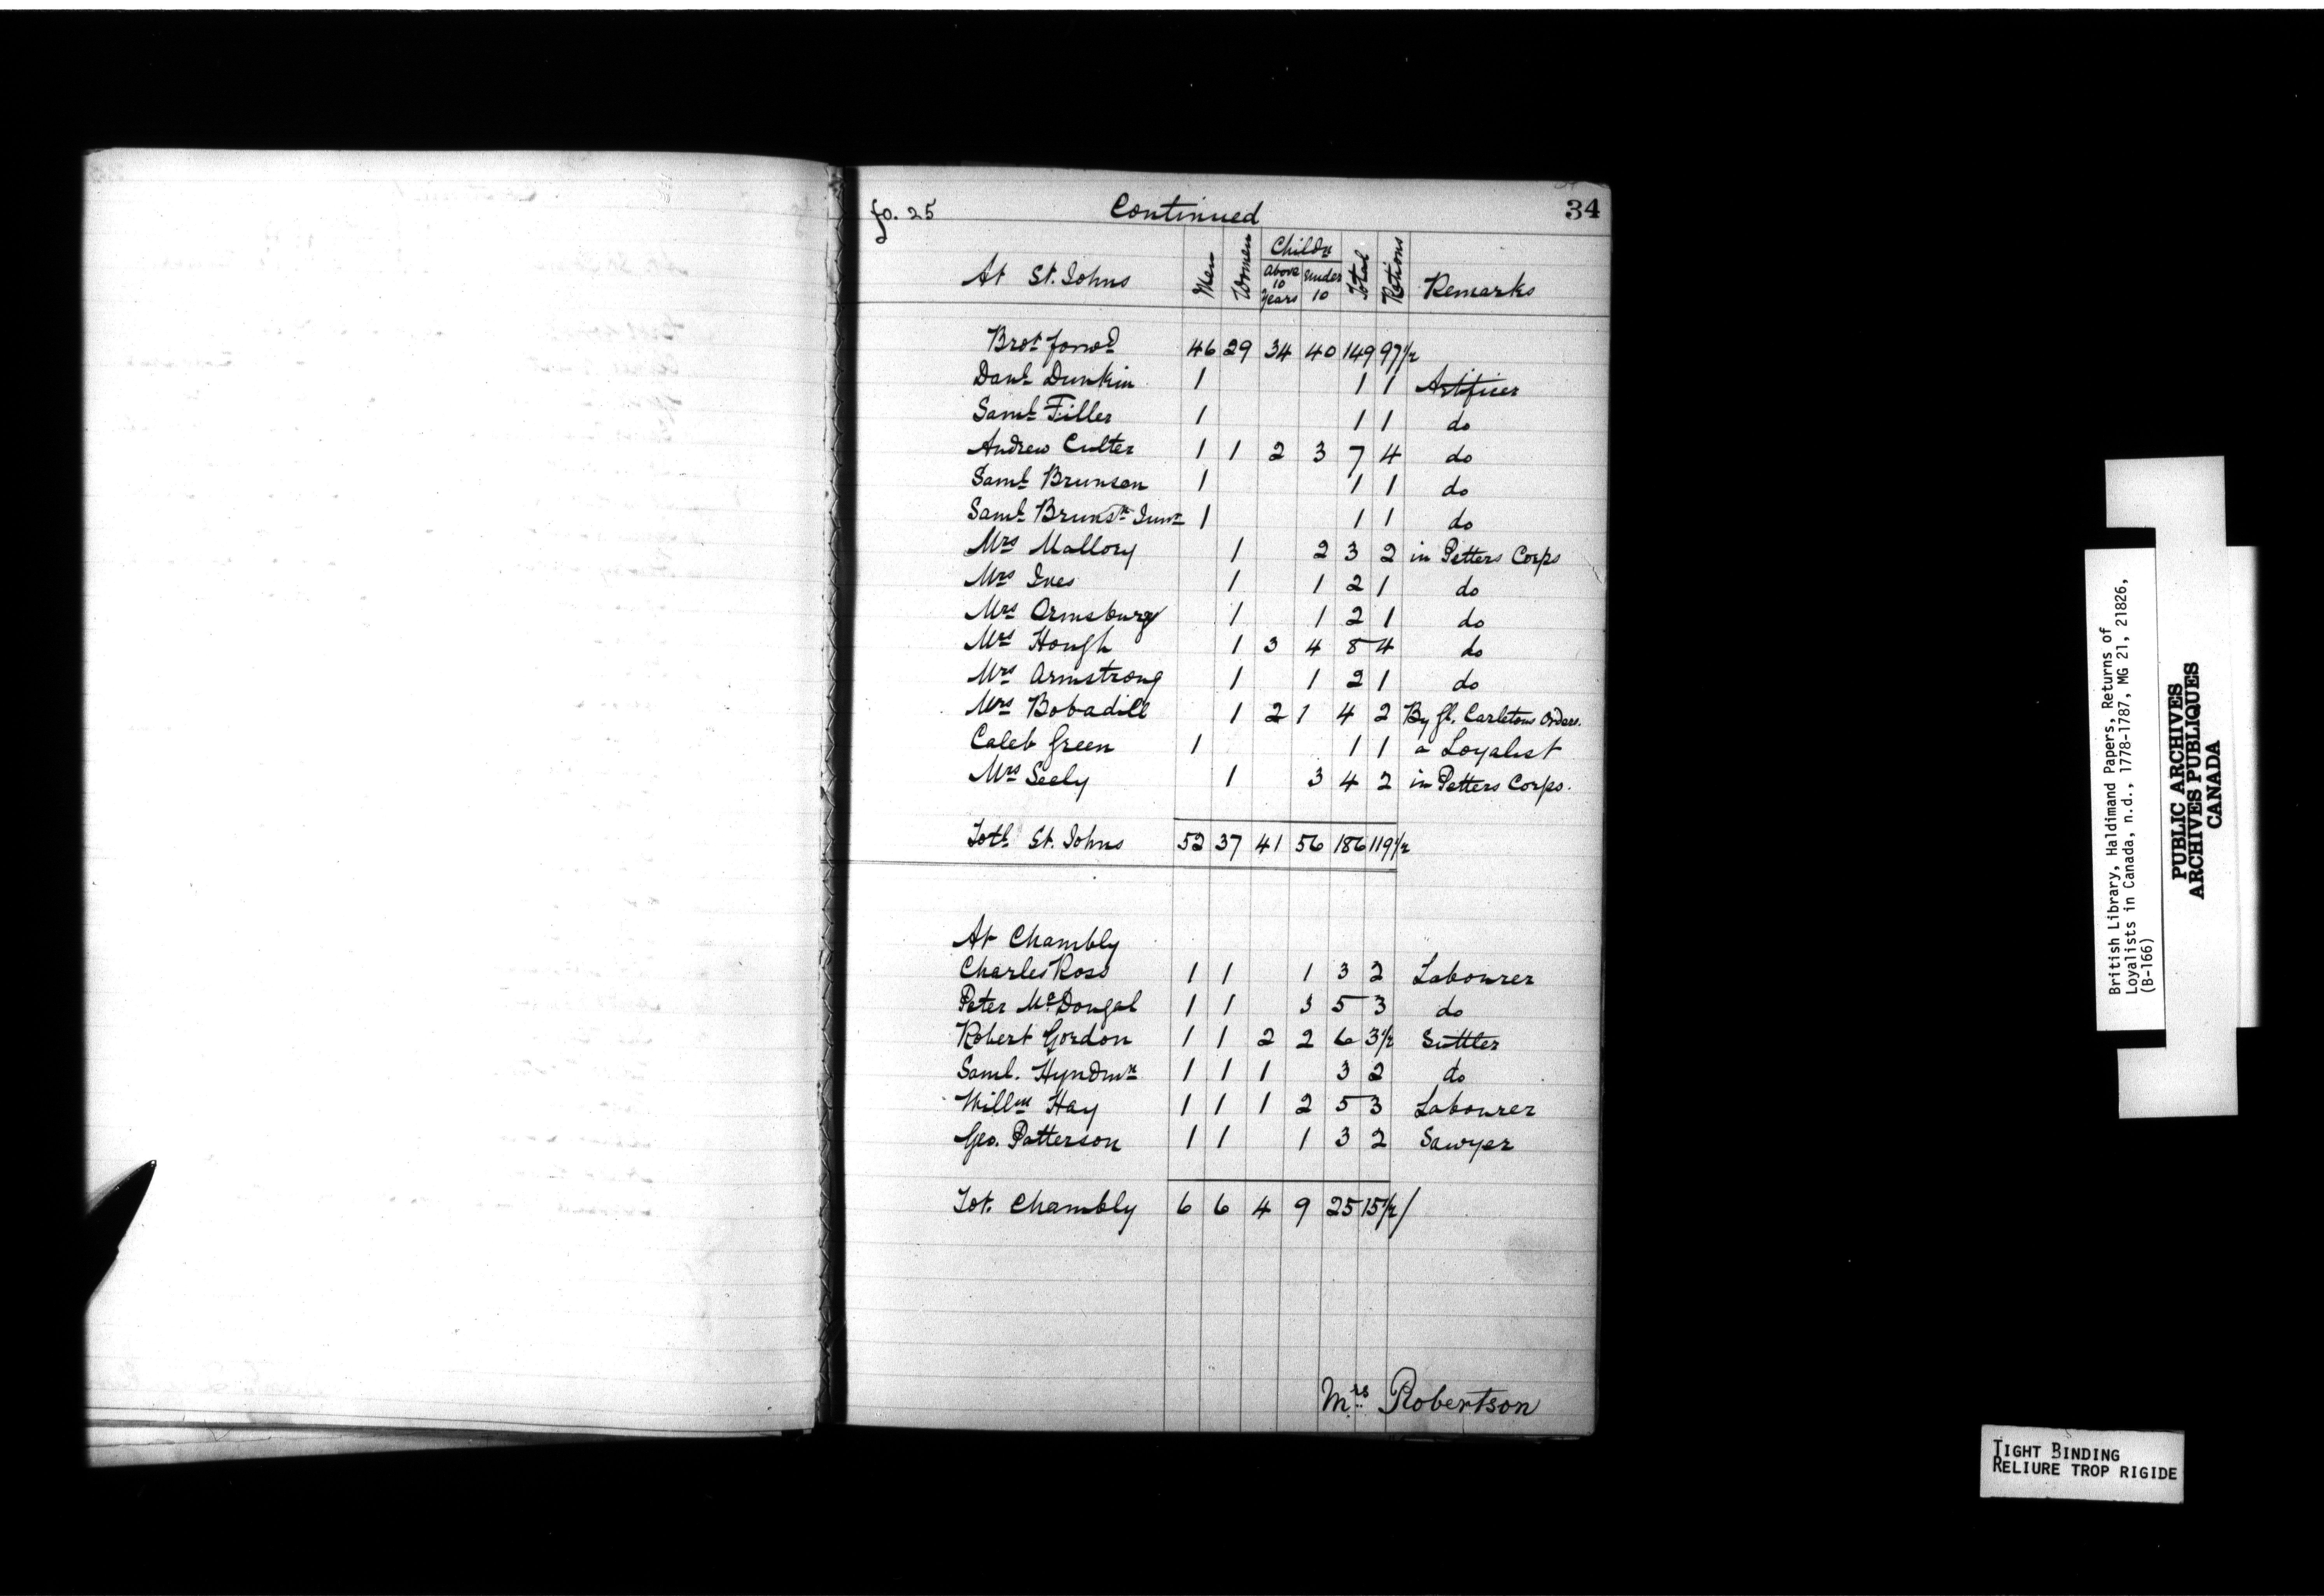 fo. 25 Continued 34
At St. Johns Men Women Childn Above 10 Years Under 10 Total Rations Remarks
Brot forwd 46 29 34 40 149 97 1/2
Danl Dunkin 1 1 1 Artificer
Saml Filler 1 1 1 do
Andrew Culter 1 1 2 3 7 4 do
Saml Brunson 1 1 1 do
Saml Brunsn Junr 1 1 1 do
Mrs Mallory 1 2 3 2 in Petters Corps
Mrs Ives 1 1 2 1 do
Mrs Ormsburg 1 1 2 1 do
Mrs Hough 1 3 4 8 4 do
Mrs Armstrong 1 1 2 1 do
Mrs Bobadill 1 2 1 4 2 By Gl. Carletons Orders.
Caleb Green 1 1 1 a Loyalist
Mrs Seely 1 3 4 2 in Petters Corps.
Totl St. Johns 52 37 41 56 186 119 1/2
At Chambly
Charles Ross 1 1 1 3 2 Labourer
Peter McDougal 1 1 3 5 3 do
Robert Gordon 1 1 2 2 6 3 1/2 Suttler
Saml. Hyndmn 1 1 1 3 2 do
Willm Hay 1 1 1 2 5 3 Labourer
Geo. Patterson 1 1 1 3 2 Sawyer
Tot. Chambly 6 6 4 9 25 15 1/2 /
Mrs Robertson
British Library, Haldimand Papers, Returns of
Loyalists in Canada, n.d., 1778-1787, MG 21, 21826,
(B-166)
PUBLIC ARCHIVES
ARCHIVES PUBLIQUES
CANADA
TIGHT BINDING
RELIURE TROP RIGIDE